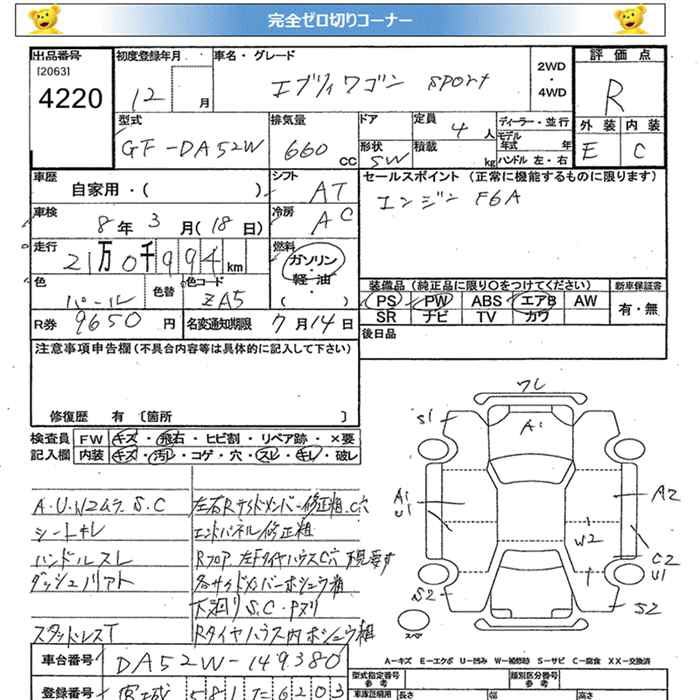 完全ゼロ切りコーナー
出品番号
[2063]
4220
初度登録年月
12 月
車名・グレード
エブリィワゴン sport
2WD
・
4WD
評価点
R
外装 内装
E C
型式
GF-DA52W
排気量
660 CC
ドア
形状 SW
定員 4 人
積載 kg
ディーラー・並行
モデル年式 年
ハンドル 左・右
車歴
自家用・( )
シフト AT
車検 8年 3月(18日)
冷房 AC
走行 21万0千994km
燃料 ガソリン・軽油・( )
色 パール
色替
色コード ZA5
R券 9650円
名変通知期限 7月14日
セールスポイント (正常に機能するものに限ります)
エンジン F6A
装備品 (純正品に限り○をつけてください)
PS PW ABS エアB AW
SR ナビ TV カワ
新車保証書
有・無
後日品
注意事項申告欄 (不具合内容等は具体的に記入して下さい)
修復歴 有 〔箇所 〕
検査員記入欄
FW キズ・飛石・ヒビ割・リペア跡・×要
内装 キズ・汚レ・コゲ・穴・スレ・キレ・破レ
A.U.W2ムラ S.C
シートキレ
ハンドルスレ
スタッドレスT
左右Rサイドメンバー修正粗.C穴
エンドパネル修正粗
Rフロア 左Fタイヤハウス C穴 下見要す
各サイドメンバーホシュウ粗
下廻り S.C.Pヌリ
Rタイヤハウス内ホシュウ粗
ワレ
S1
A1
A1
U1
A2
W2
C2
U1
S2
S2
スペア
A−キズ E−エクボ U−凹み W−補修跡 S−サビ C−腐食 XX−交換済
車台番号 DA52W-149380
登録番号 宮城 581 セ 6203
型式指定番号
参考
類別区分番号
参考
車庫証明用
長さ
幅
高さ